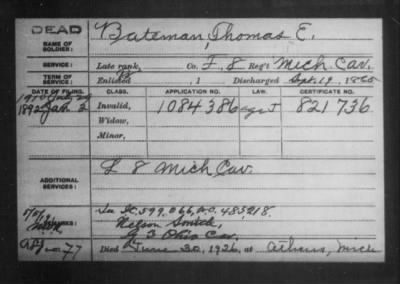 DEAD
NAME OF SOLDIER:
Bateman, Thomas E.
SERVICE:
Late rank, Co. F. 8 Reg't Mich Cav.
TERM OF SERVICE:
Enlisted , 1 Discharged Sept. 19, 1865
DATE OF FILING. CLASS. APPLICATION NO. LAW. CERTIFICATE NO.
1892 Jan 2 Invalid, 1084386 821736
Widow,
Minor,
ADDITIONAL SERVICES:
L 8 Mich Cav.
REMARKS:
See 483218.
Nelson Smith,
G 3 Ohio Cav.
Died June 30, 1926, at Athens, Mich